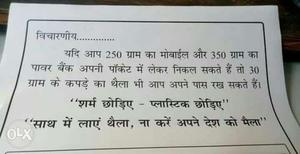 विचारणीय..............
यदि आप 250 ग्राम का मोबाईल और 350 ग्राम का
पावर बैंक अपनी पॉकेट में लेकर निकल सकते हैं तो 30
ग्राम के कपड़े का थैला भी आप अपने पास रख सकते हैं।
“शर्म छोड़िए - प्लास्टिक छोड़िए”
“साथ में लाएं थैला, ना करें अपने देश को मैला”
OLX